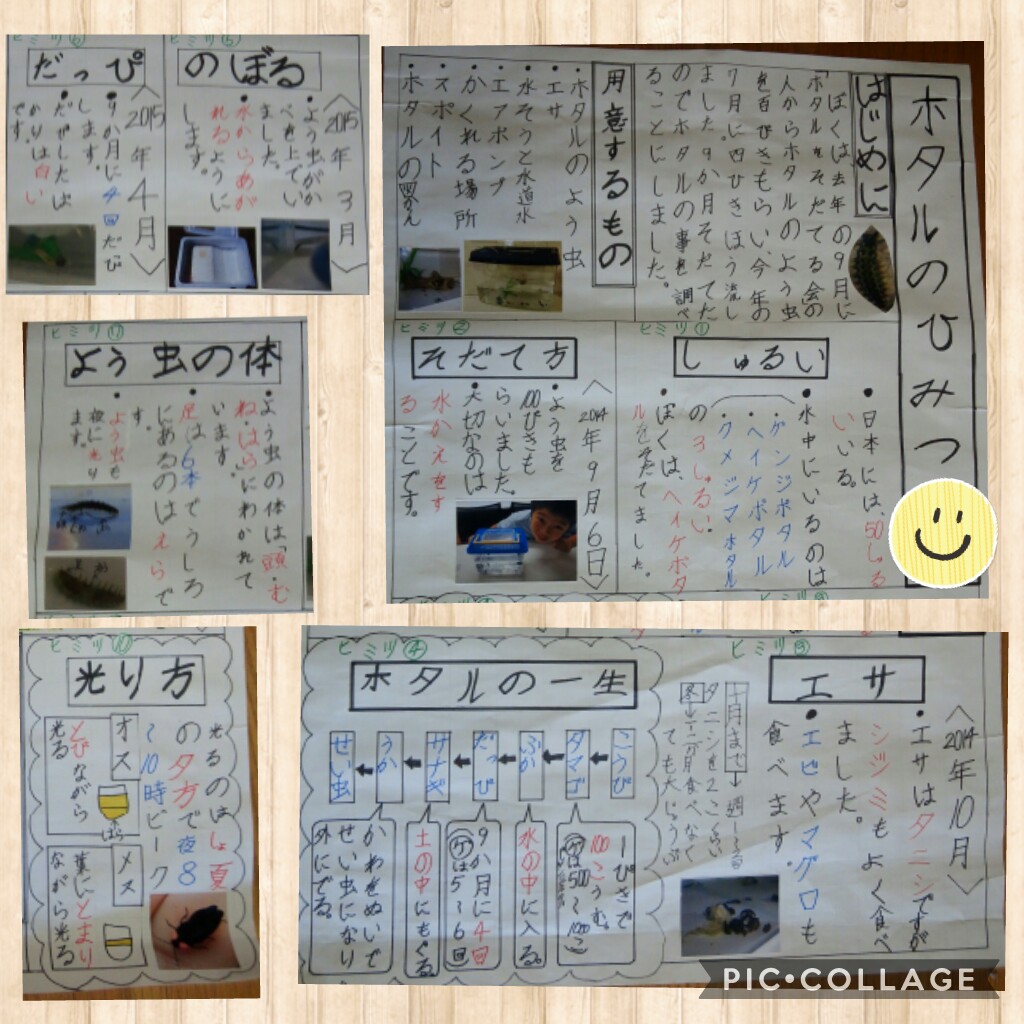 ホタルのひみつ
はじめに
ぼくは去年の9月に
「ホタルをそだてる会の
人からホタルのよう虫
を百ぴきもらい、今年の
7月に四ひきほう流し
ました。9か月そだてた
のでホタルの事を調べ
ることにしました。
用意するもの
・ホタルのよう虫
・エサ
・水そうと水道水
・エアポンプ
・かくれる場所
・スポイト
ヒミツ①
しゅるい
・日本には、50しゅるい
いる。
・水中にいるのは
・ゲンジボタル
・ヘイケボタル
・クメジマボタル
の3しゅるい。
・ぼくは、ヘイケボタ
ルをそだてました。
ヒミツ②
そだて方
〈2014年9月6日〉
・よう虫を
100ぴきも
らいました。
・大切なのは
水かえをす
ることです。
ヒミツ③
エサ
〈2014年10月〉
・エサはタニシですが
シジミもよく食べ
ました。
・エビやマグロも
食べます。
十月まで→週1~2回
ヒミツ④
ホタルの一生
こうび
タマゴ
ふか
だっぴ
サナギ
うか
せい虫
一ぴきで
100こうむ。
水の中に入る。
9か月に4回
土の中にもぐる
かわをぬいで
せい虫になり
外にでる。
ヒミツ⑤
のぼる
〈2015年3月〉
・よう虫がか
べを上ってい
ました。
水からあが
れるように
します。
ヒミツ⑥
だっぴ
〈2015年4月〉
・9か月に4回だっぴ
します。
・だっぴしたば
かりは白い
です。
よう虫の体
・よう虫の体は「頭・む
ね・はら」にわかれて
います。
足は6本でうしろ
にあるのはえらで
す。
・よう虫も
夜に光り
ます。
ヒミツ⑩
光り方
光るのはしょ夏
の夕方で夜8
~10時ピーク
オス
とびながら
光る
はら
メス
葉にとまり
ながら光る
PIC•COLLAGE